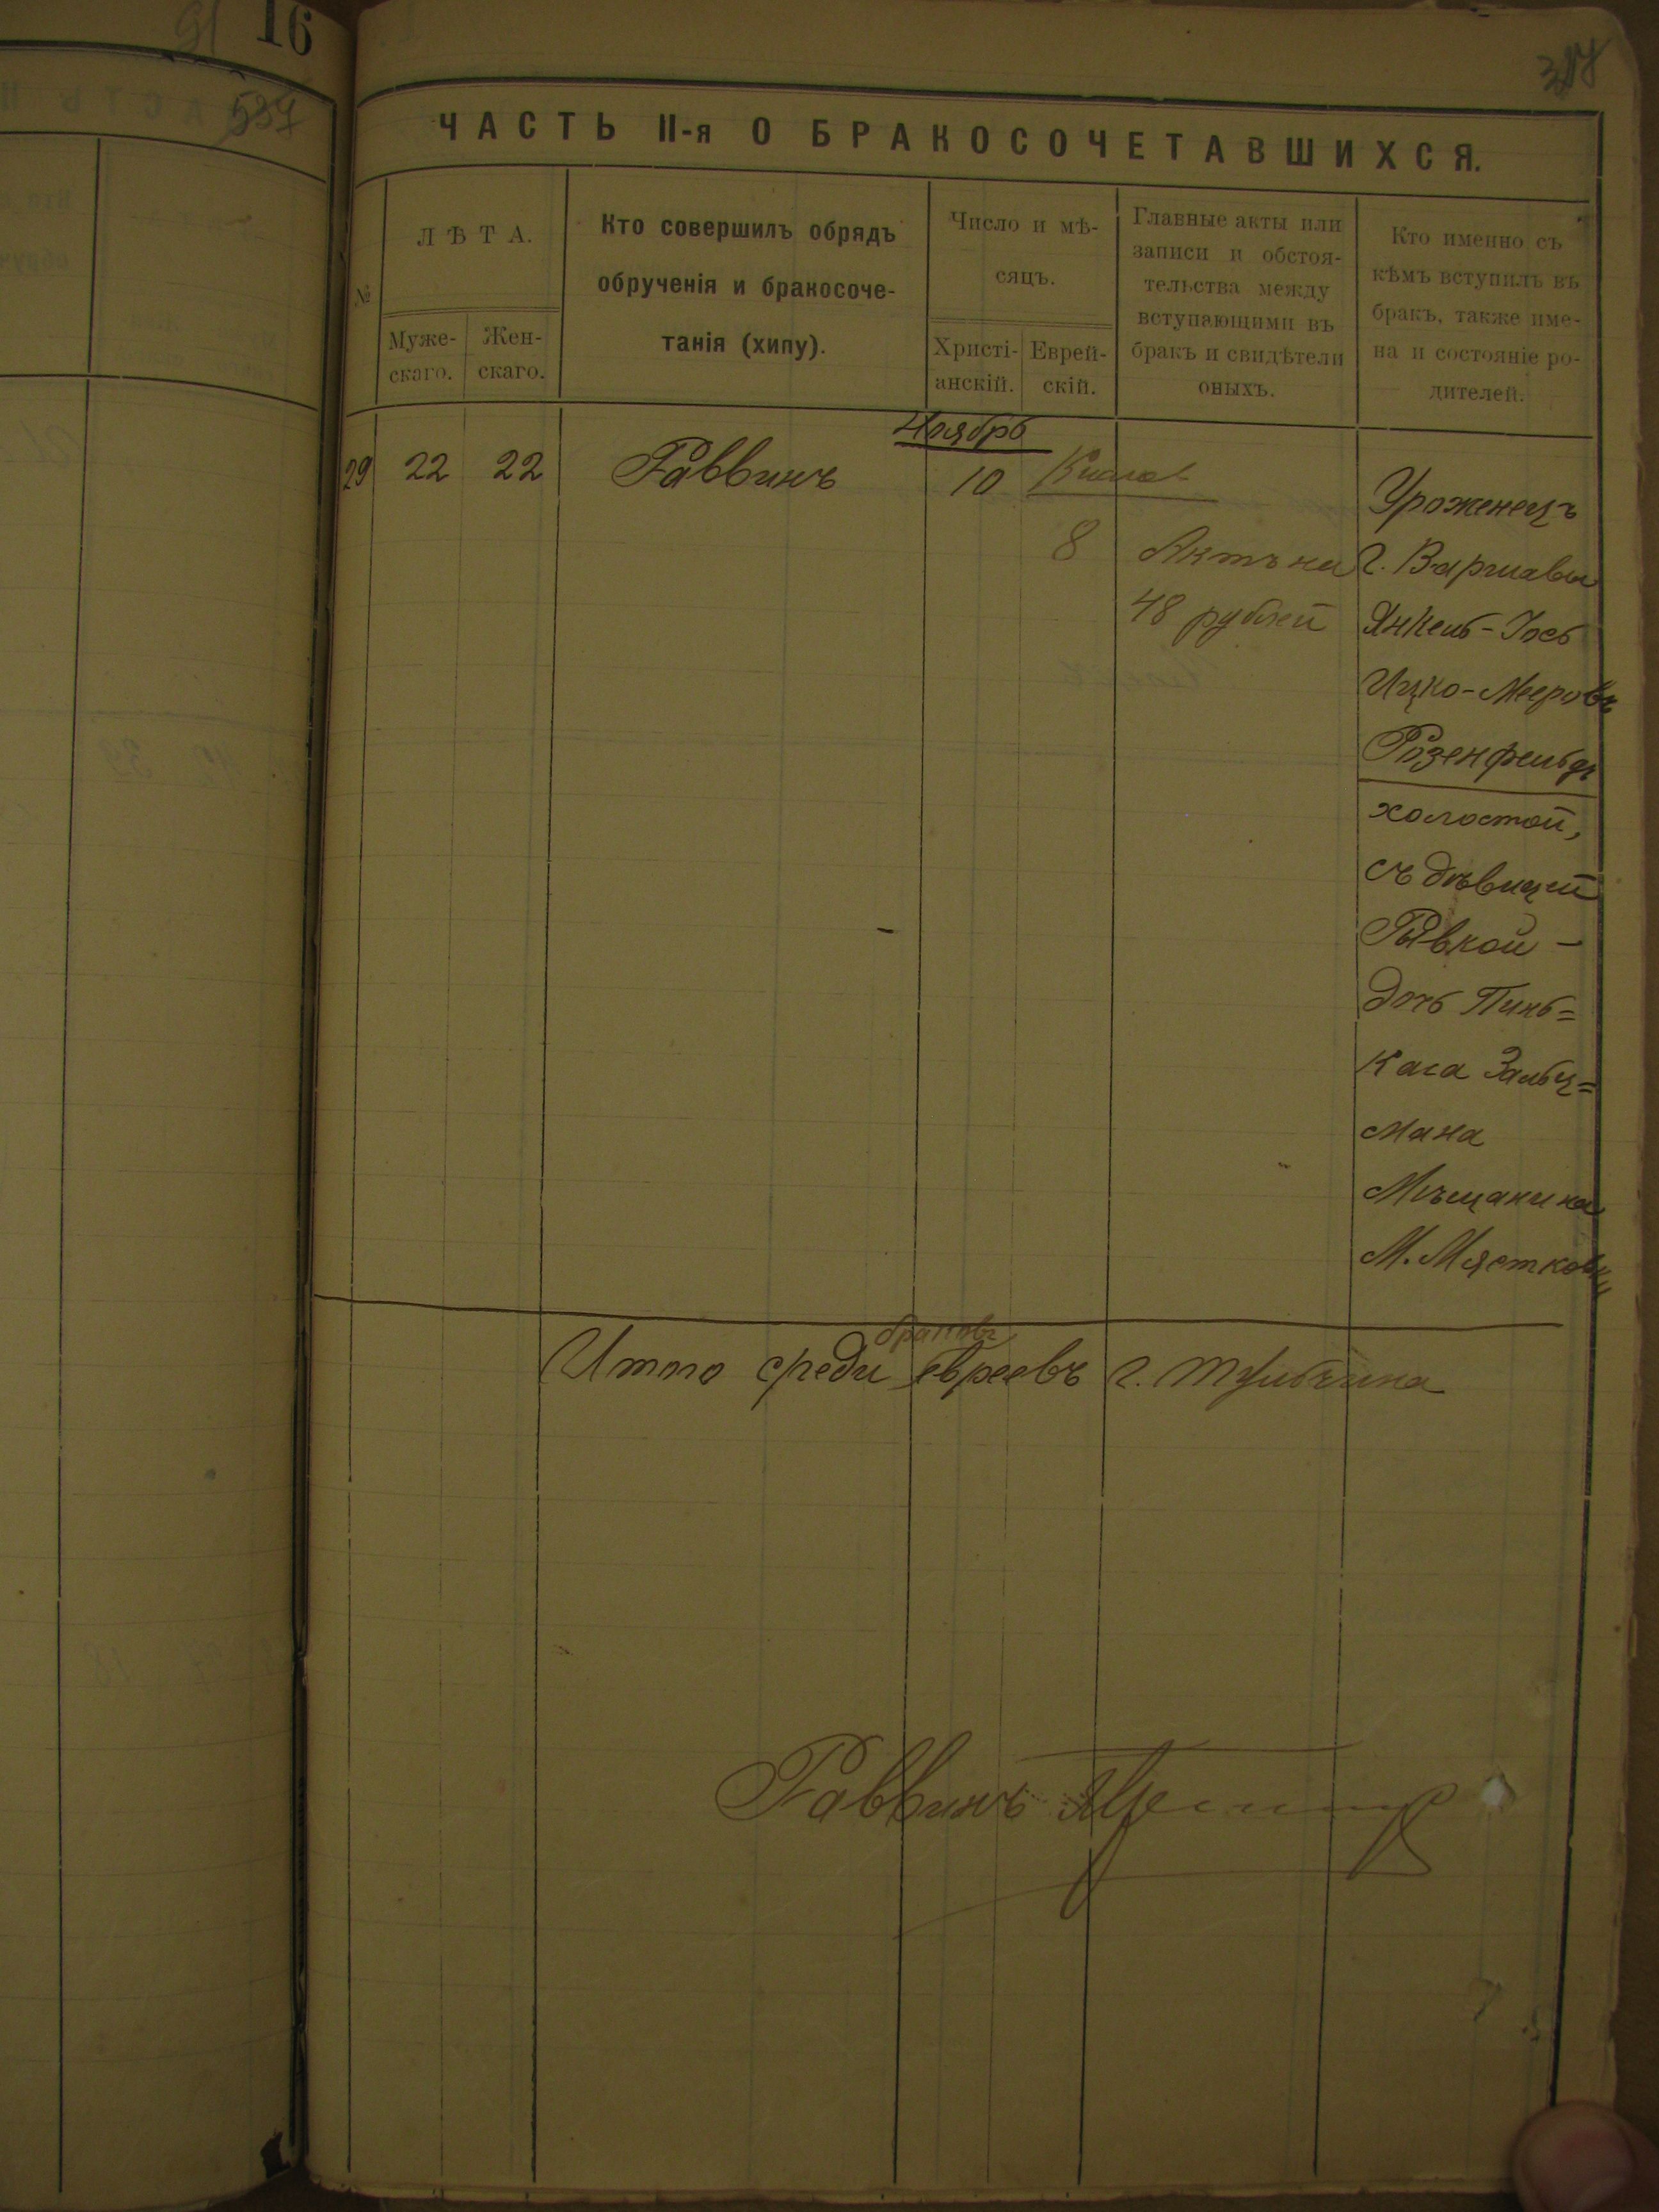 16
537
ЧАСТЬ II-я О БРАКОСОЧЕТАВШИХСЯ.
№
ЛѢТА.
Муже-
скаго.
Жен-
скаго.
Кто совершилъ обрядъ
обрученія и бракосоче-
танія (хипу).
Число и мѣ-
сяцъ.
Христі-
анскій.
Еврей-
скій.
Главные акты или
записи и обстоя-
тельства между
вступающими въ
бракъ и свидѣтели
оныхъ.
Кто именно съ
кѣмъ вступилъ въ
бракъ, также име-
на и состояніе ро-
дителей.
Ноябрь
29 22 22 Раввинъ 10
8
Актъ на
48 рублей
Уроженецъ
г. Варшавы
Янкель-Іось
Ицко-Меировъ
Розенфельдъ
холостой,
съ дѣвицей
Рывкой -
дочь Пинь=
каса Зальц=
мана
Мѣщанина
М. Мястковки
браковъ
Итого среди евреевъ г. Тульчина
Раввинъ